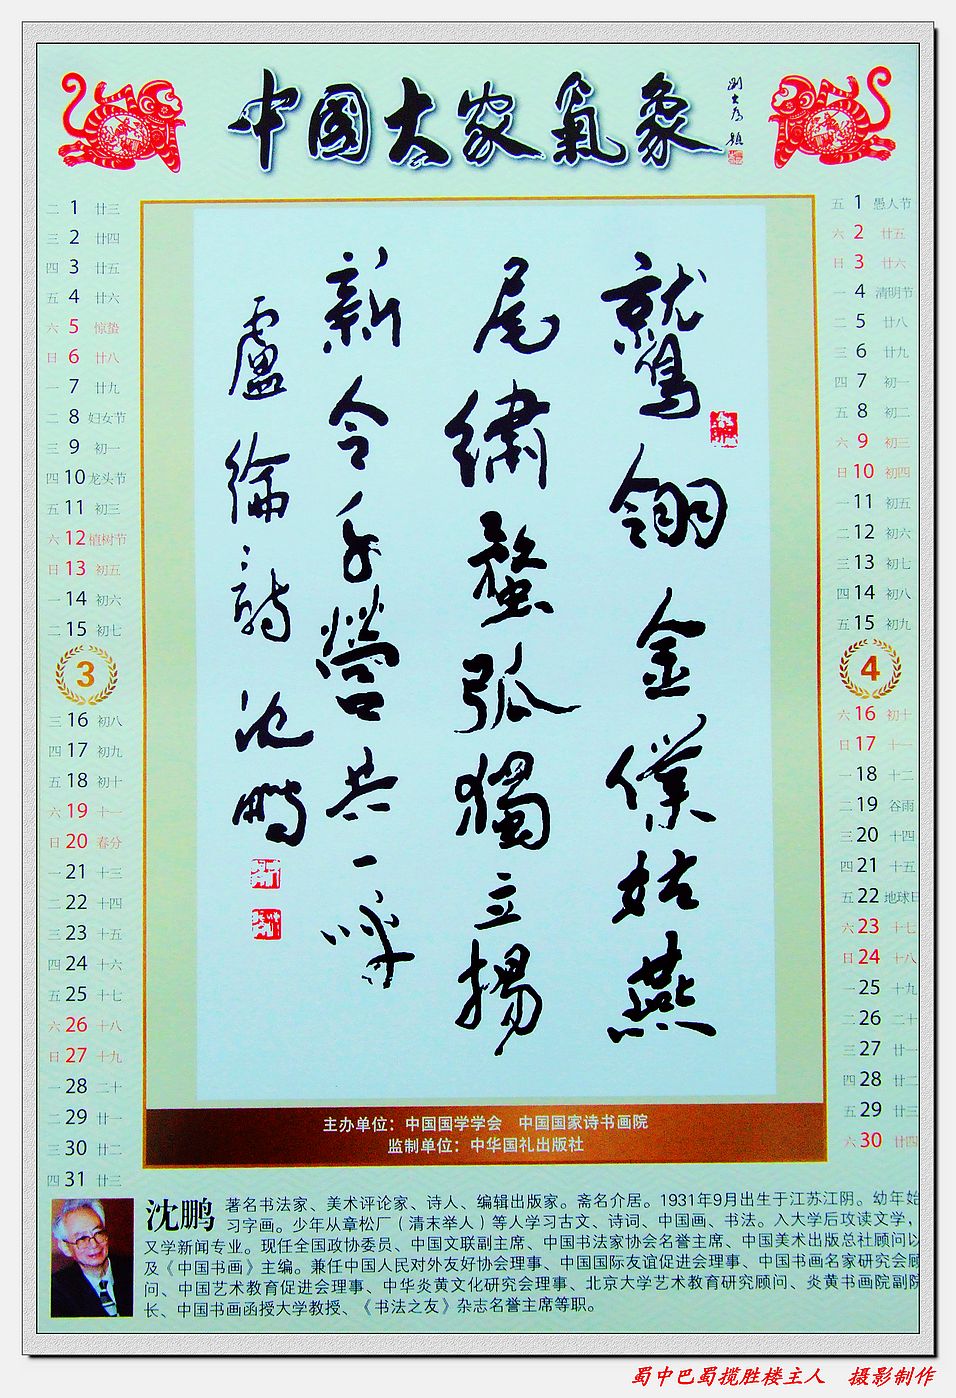 中国大家氣象
刘大为题
二 1 廿三
三 2 廿四
四 3 廿五
五 4 廿六
六 5 惊蛰
日 6 廿八
一 7 廿九
二 8 妇女节
三 9 初一
四 10 龙头节
五 11 初三
六 12 植树节
日 13 初五
一 14 初六
二 15 初七
3
三 16 初八
四 17 初九
五 18 初十
六 19 十一
日 20 春分
一 21 十三
二 22 十四
三 23 十五
四 24 十六
五 25 十七
六 26 十八
日 27 十九
一 28 二十
二 29 廿一
三 30 廿二
四 31 廿三
鷲翎金僕姑燕
尾繡蝥弧獨立揚
新令千營共一呼
盧綸詩 沈鹏
五 1 愚人节
六 2 廿五
日 3 廿六
一 4 清明节
二 5 廿八
三 6 廿九
四 7 初一
五 8 初二
六 9 初三
日 10 初四
一 11 初五
二 12 初六
三 13 初七
四 14 初八
五 15 初九
4
六 16 初十
日 17 十一
一 18 十二
二 19 谷雨
三 20 十四
四 21 十五
五 22 地球日
六 23 十七
日 24 十八
一 25 十九
二 26 二十
三 27 廿一
四 28 廿二
五 29 廿三
六 30 廿四
主办单位：中国国学学会 中国国家诗书画院
监制单位：中华国礼出版社
沈鹏 著名书法家、美术评论家、诗人、编辑出版家。斋名介居。1931年9月出生于江苏江阴。幼年始
习字画。少年从章松厂（清末举人）等人学习古文、诗词、中国画、书法。入大学后攻读文学，
又学新闻专业。现任全国政协委员、中国文联副主席、中国书法家协会名誉主席、中国美术出版总社顾问以
及《中国书画》主编。兼任中国人民对外友好协会理事、中国国际友谊促进会理事、中国书画名家研究会顾
问、中国艺术教育促进会理事、中华炎黄文化研究会理事、北京大学艺术教育研究顾问、炎黄书画院副院
长、中国书画函授大学教授、《书法之友》杂志名誉主席等职。
蜀中巴蜀揽胜楼主人 摄影制作